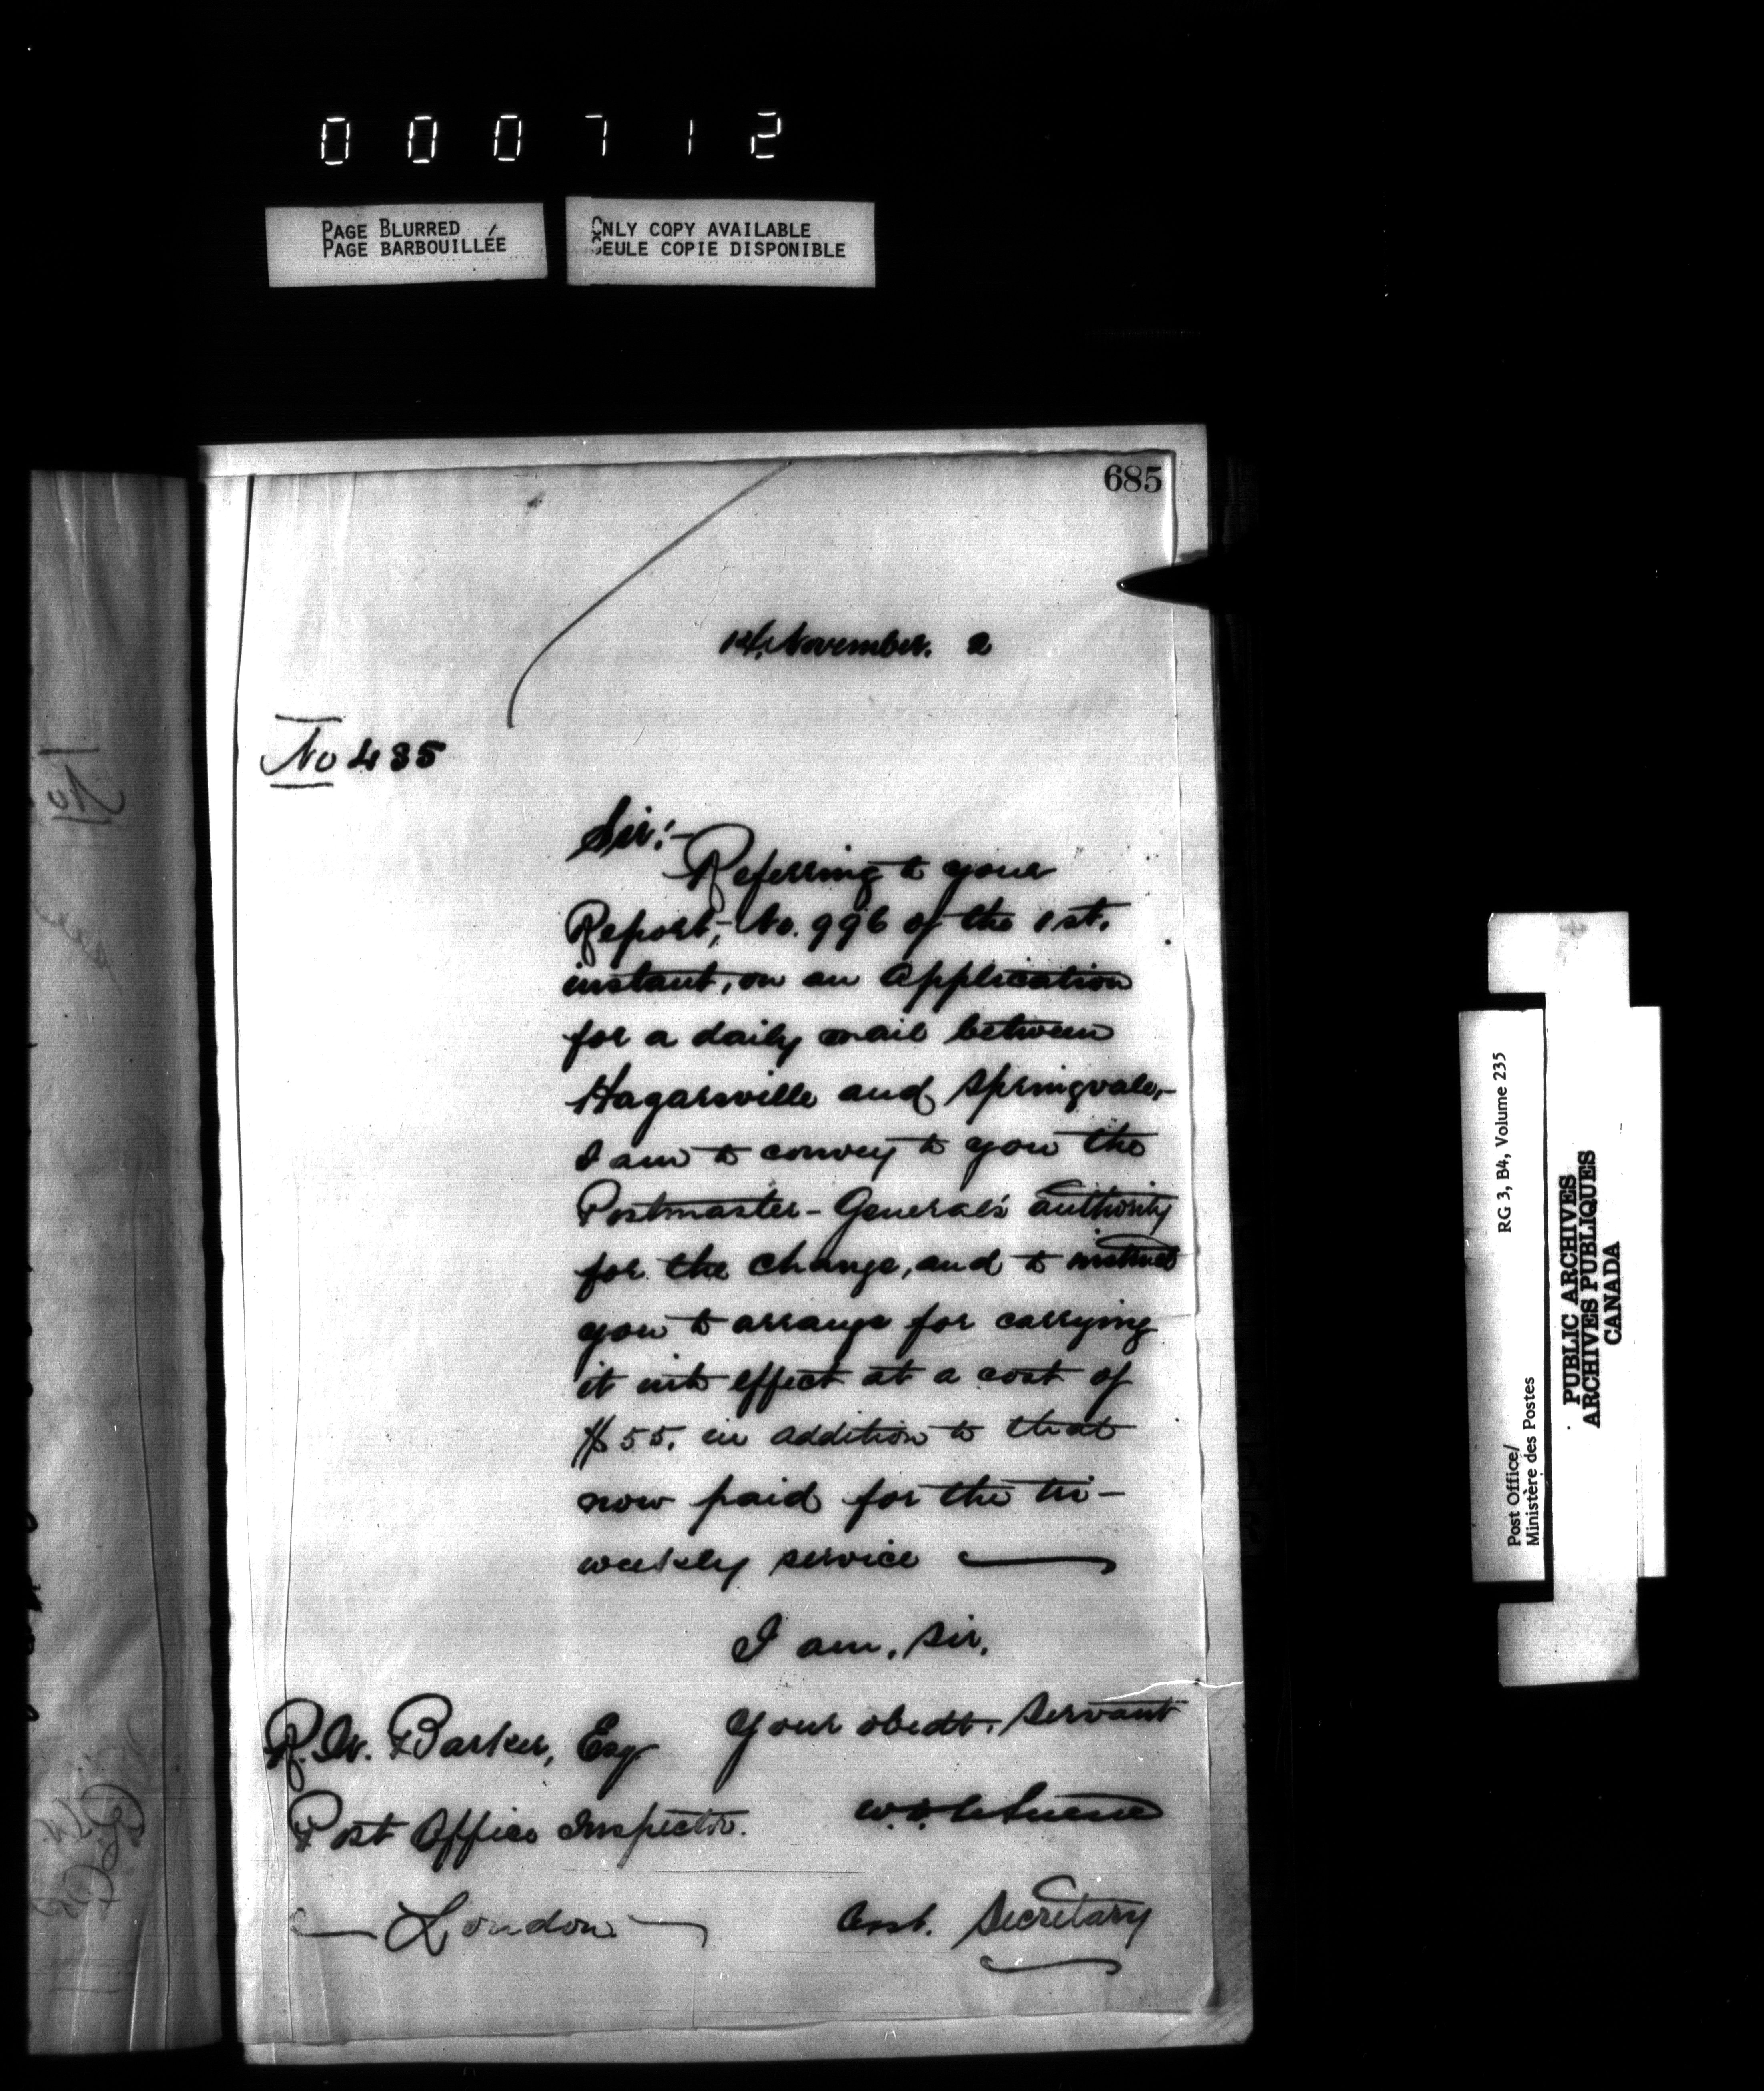 000712
PAGE BLURRED
PAGE BARBOUILLÉE
ONLY COPY AVAILABLE
SEULE COPIE DISPONIBLE
685
14. November. 2
No 435
Sir:-
Referring to your
Report, No. 996 of the 1st.
instant, on an Application
for a daily mail between
Hagarsville and Springvale,-
I am to convey to you the
Postmaster-General's authority
for the change, and to instruct
you to arrange for carrying
it into effect at a cost of
$55. in addition to that
now paid for the tri-
weekly service
I am, Sir,
Your obedt. Servant
R. W. Barker, Esq
Post Office Inspector.
London
Asst. Secretary
Post Office/
Ministère des Postes
RG 3, B4, Volume 235
PUBLIC ARCHIVES
ARCHIVES PUBLIQUES
CANADA